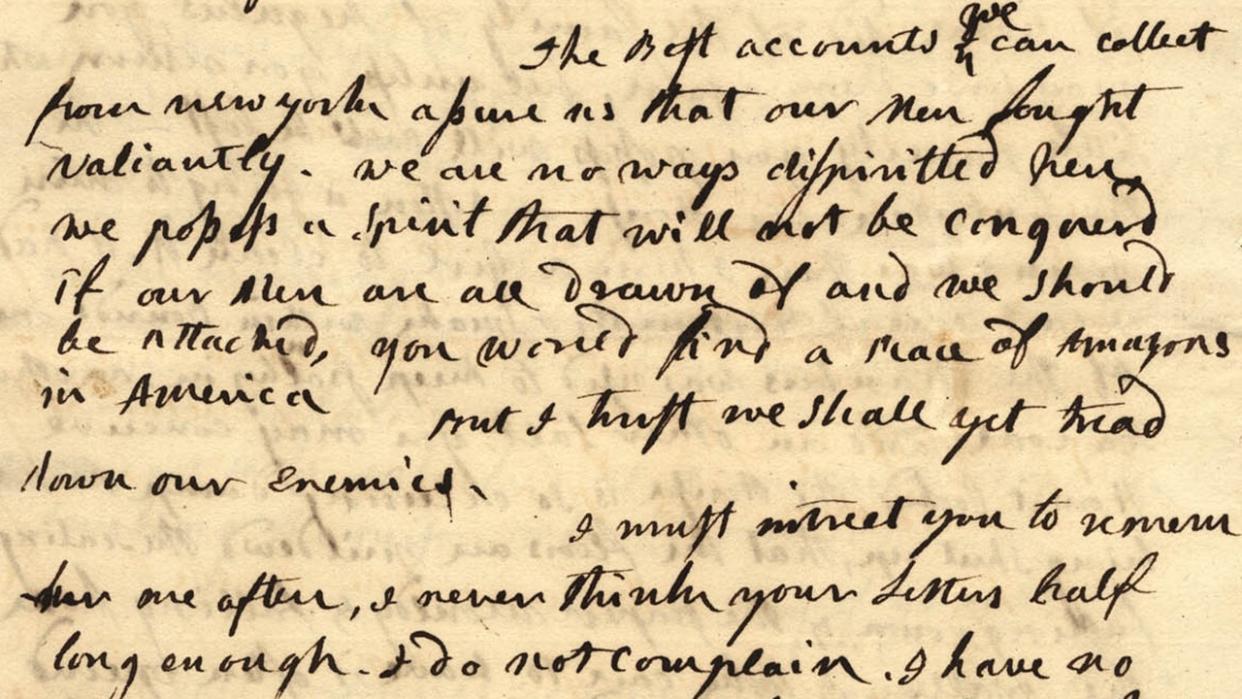 The Best accounts we can collect
from new york assure us that our Men fought
valiantly. we are no ways dispiritted here,
we possess a Spirit that will not be conquerd
if our Men are all drawn of and we should
be attacked, you would find a Race of Amazons
in America
But I trust we shall yet tread
down our Enemies.
I must intreet you to remem
ber me often, I never think your Letters half
long enough. I do not complain. I have no